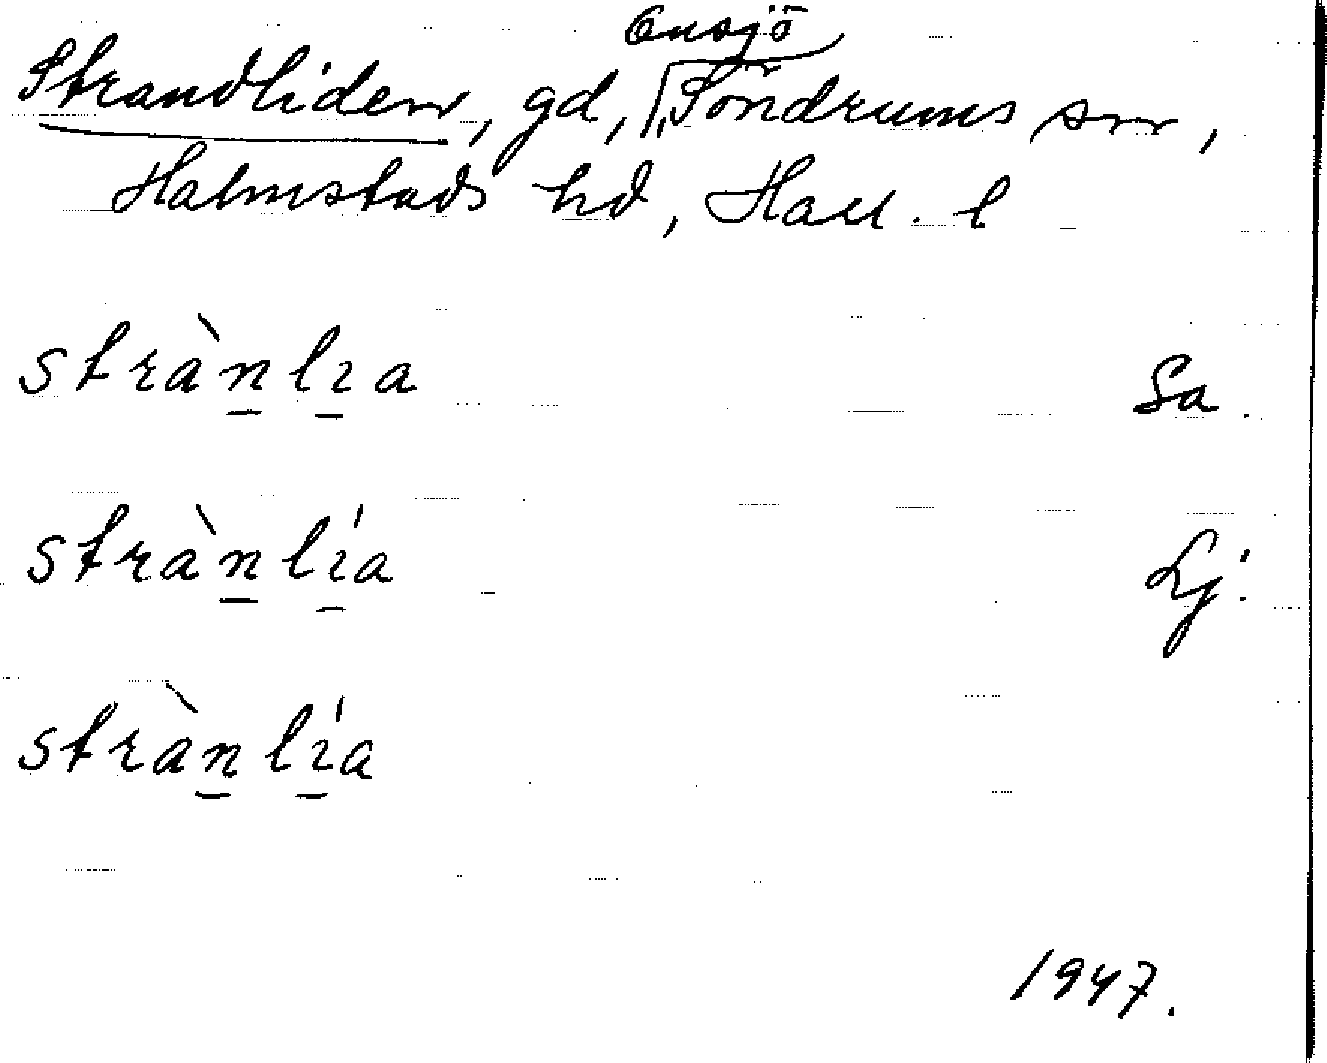 Strandliden, gd, Ensjö Söndrums sn,
Halmstads hd, Hall. l
strànlıa Sa.
strànlı́a Lj.
strànlı́a
1947.